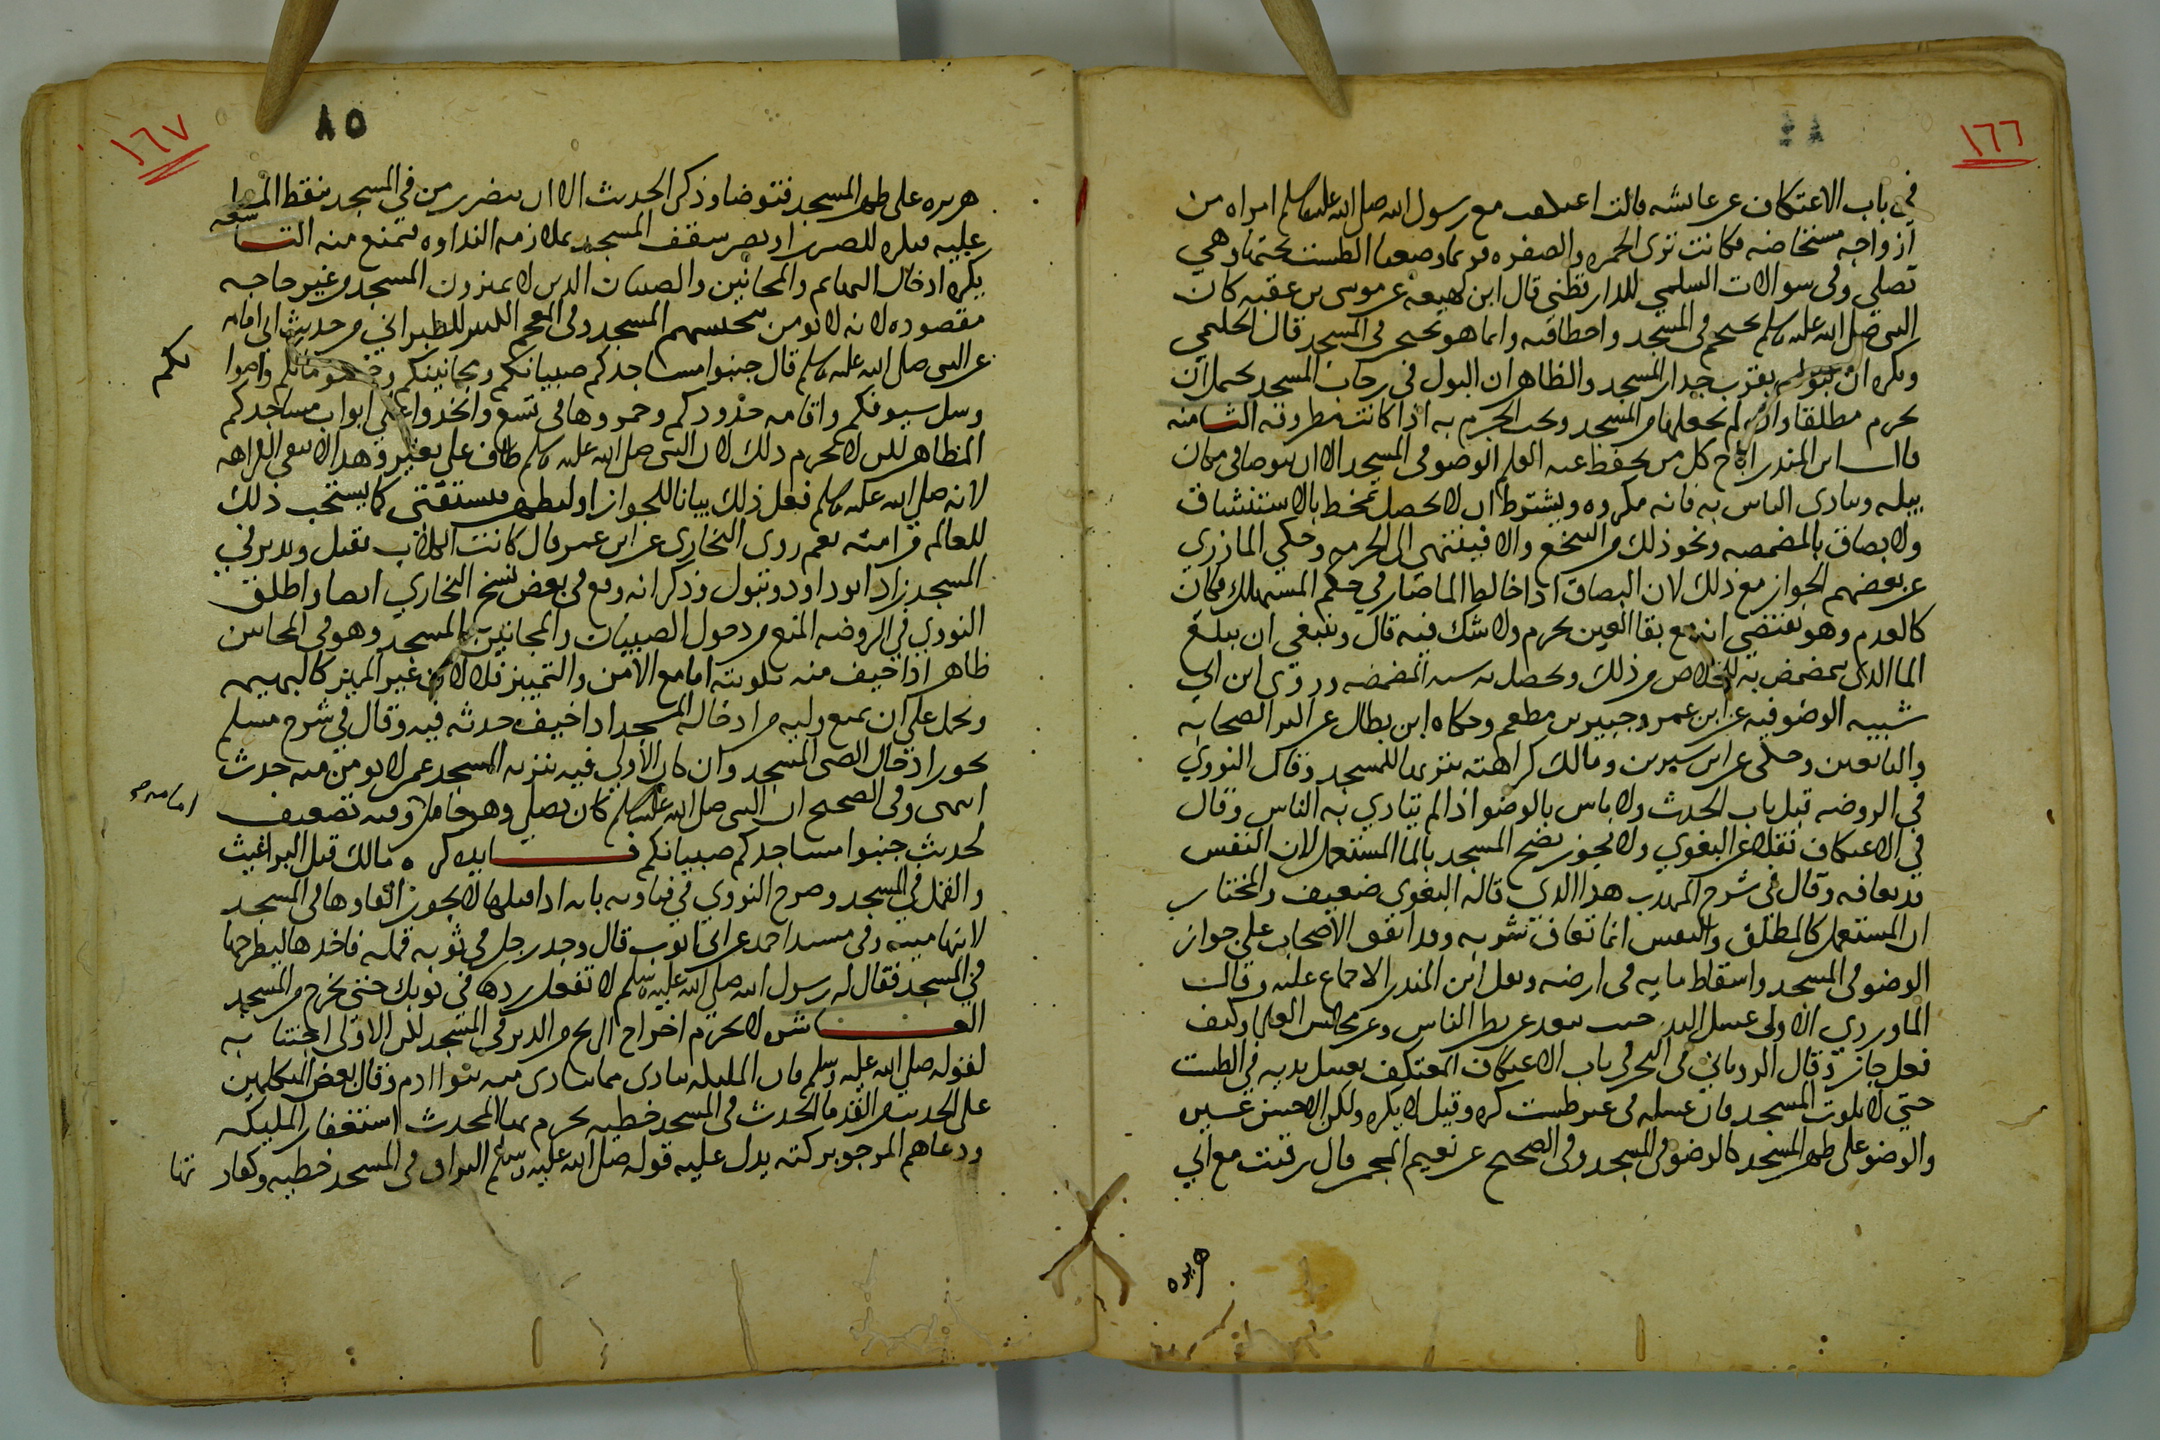 ١٦٦
في باب الاعتكاف عن عائشه قالت اعتكفت مع رسول الله صلى الله عليه وسلم امراه من
ازواجه مستحاضه فكانت ترى الحمره والصفره فربما وضعنا الطست تحتها وهي
تصلي وفي سوالات السلمي للدارقطني قال ابن لهيعه عن موسى بن عقبه كان
النبي صلى الله عليه وسلم يحتجم في المسجد واخطا فيه وانما هو يحتجر في المسجد قال الحليمي
ويكره ان يبول بقرب جدار المسجد والظاهر ان البول في رحاب المسجد يحتمل ان
يحرم مطلقا وان لم نجعلها من المسجد ويجب الجزم به اذا كانت مطروقه الثامنه
قال ابن المنذر اباح كل من يحفظ عنه العلم الوضو في المسجد الا ان يتوضا في مكان
يبله ويتاذى الناس به فانه مكروه ويشترط ان لا يحصل تمخط بالاستنشاق
ولا بصاق بالمضمضه ونحو ذلك من التنخع والا فينتهي الى الحرمه وحكي المازري
عن بعضهم الجواز مع ذلك لان البصاق اذا خالط الما صار في حكم المستهلك فكان
كالعدم وهو يقتضي انه مع بقا العين يحرم ولا شك فيه قال وينبغي ان يبلغ
الما الذي يتمضمض به للخلاص من ذلك ويحصل به سنه المضمضه وروى ابن ابي
شيبه الوضو فيه عن ابن عمر وجبير بن مطعم وحكاه ابن بطال عن اكثر الصحابه
والتابعين وحكى عن ابن سيرين ومالك كراهته تنزيها للمسجد وقال النووي
في الروضه قبل باب الحدث ولا باس بالوضو اذا لم يتاذي به الناس وقال
في الاعتكاف نقلا عن البغوي ولا يجوز نضح المسجد بالما المستعمل لان النفس
قد تعافه وقال في شرح المهذب هذا الذي قاله البغوي ضعيف والمختار
ان المستعمل كالمطلق والنفس انما تعاف شربه وقد اتفق الاصحاب علي جواز
الوضو في المسجد واسقاط مايه في ارضه ونقل ابن المنذر الاجماع عليه وقالت
الماوردي الاولى غسل اليد حيث يبعد عن نظر الناس وعن مجالس العلما وكيف
فعل جاز وقال الروياني في البحر في باب الاعتكاف المعتكف يغسل يديه في الطست
حتي لا يلوث المسجد فان غسله في غير طست كره وقيل لا يكره ولكن الاحسن غسله
والوضو على ظهر المسجد كالوضو في المسجد وفي الصحيح عن نعيم المجمر قال رقيت مع ابي
هريره
١٦٧
٨٥
هريره على ظهر المسجد فتوضا وذكر الحديث الا ان يتضرر من في المسجد بنقط الما
عليه فيكره للضرر او يضر سقف المسجد بملازمه النداوه فيمنع منه التاسعه
يكره ادخال البهايم والمجانين والصبيان الذين لا يميزون المسجد من غير حاجه
مقصوده لانه لا يومن تنجيسهم المسجد وفي المعجم الكبير للطبراني من حديث ابي امامه
عن النبي صلى الله عليه وسلم قال جنبوا مساجدكم صبيانكم ومجانينكم وخصوماتكم واصواتكم
وسل سيوفكم واقامه حدودكم وجمروها في سبع واتخذوا علي ابواب مساجدكم
المطاهر لكن لا يحرم ذلك لان النبي صلى الله عليه وسلم طاف علي بعير وهذا لا ينفي الكراهه
لانه صلى الله عليه وسلم فعل ذلك بيانا للجواز او ليظهر فيستفتى كما يستحب ذلك
للعالم من امته نعم روى البخاري عن ابن عمر قال كانت الكلاب تقبل وتدبر في
المسجد زاد ابو داود وتبول وذكر انه وقع في بعض نسخ البخاري ايضا واطلق
النووي في الروضه المنع من دخول الصبيان والمجانين المسجد وهو في المجانين
ظاهر اذا خيف منه تلويثه اما مع الامن والتمييز فلا لكن غير المميز كالبهيمه
ونحمل على ان يمنع وليه من ادخاله المسجد اذا خيف حدثه فيه وقال في شرح مسلم
يجوز ادخال الصبي المسجد وان كان الاولى فيه تنزيه المسجد عمن لا يومن منه حدث
انتهى وفي الصحيح ان النبي صلى الله عليه وسلم كان يصلي وهو حامل امامه وفيه تضعيف
لحديث جنبوا مساجدكم صبيانكم فايده كره مالك قتل البراغيث
والقمل في المسجد وصرح النووي في فتاويه بانه اذا قتلها لا يجوز القاوها في المسجد
لانها ميته وفي مسند احمد عن ابي ايوب قال وجد رجل في ثوبه قمله فاخذها ليطرحها
في المسجد فقال له رسول الله صلى الله عليه وسلم لا تفعل ردها في ثوبك حتى تخرج من المسجد
العاشره لا يحرم اخراج الريح من الدبر في المسجد لكن الاولى اجتنابه
لقوله صلي الله عليه وسلم فان المليكه تتاذى مما يتاذى منه بنوا ادم وقال بعض المتكلمين
على الحديث من القدما الحدث في المسجد خطيه يحرم بها المحدث استغفار المليكه
ودعاهم المرجو بركته يدل عليه قوله صلى الله عليه وسلم البزاق في المسجد خطيه وكفارتها